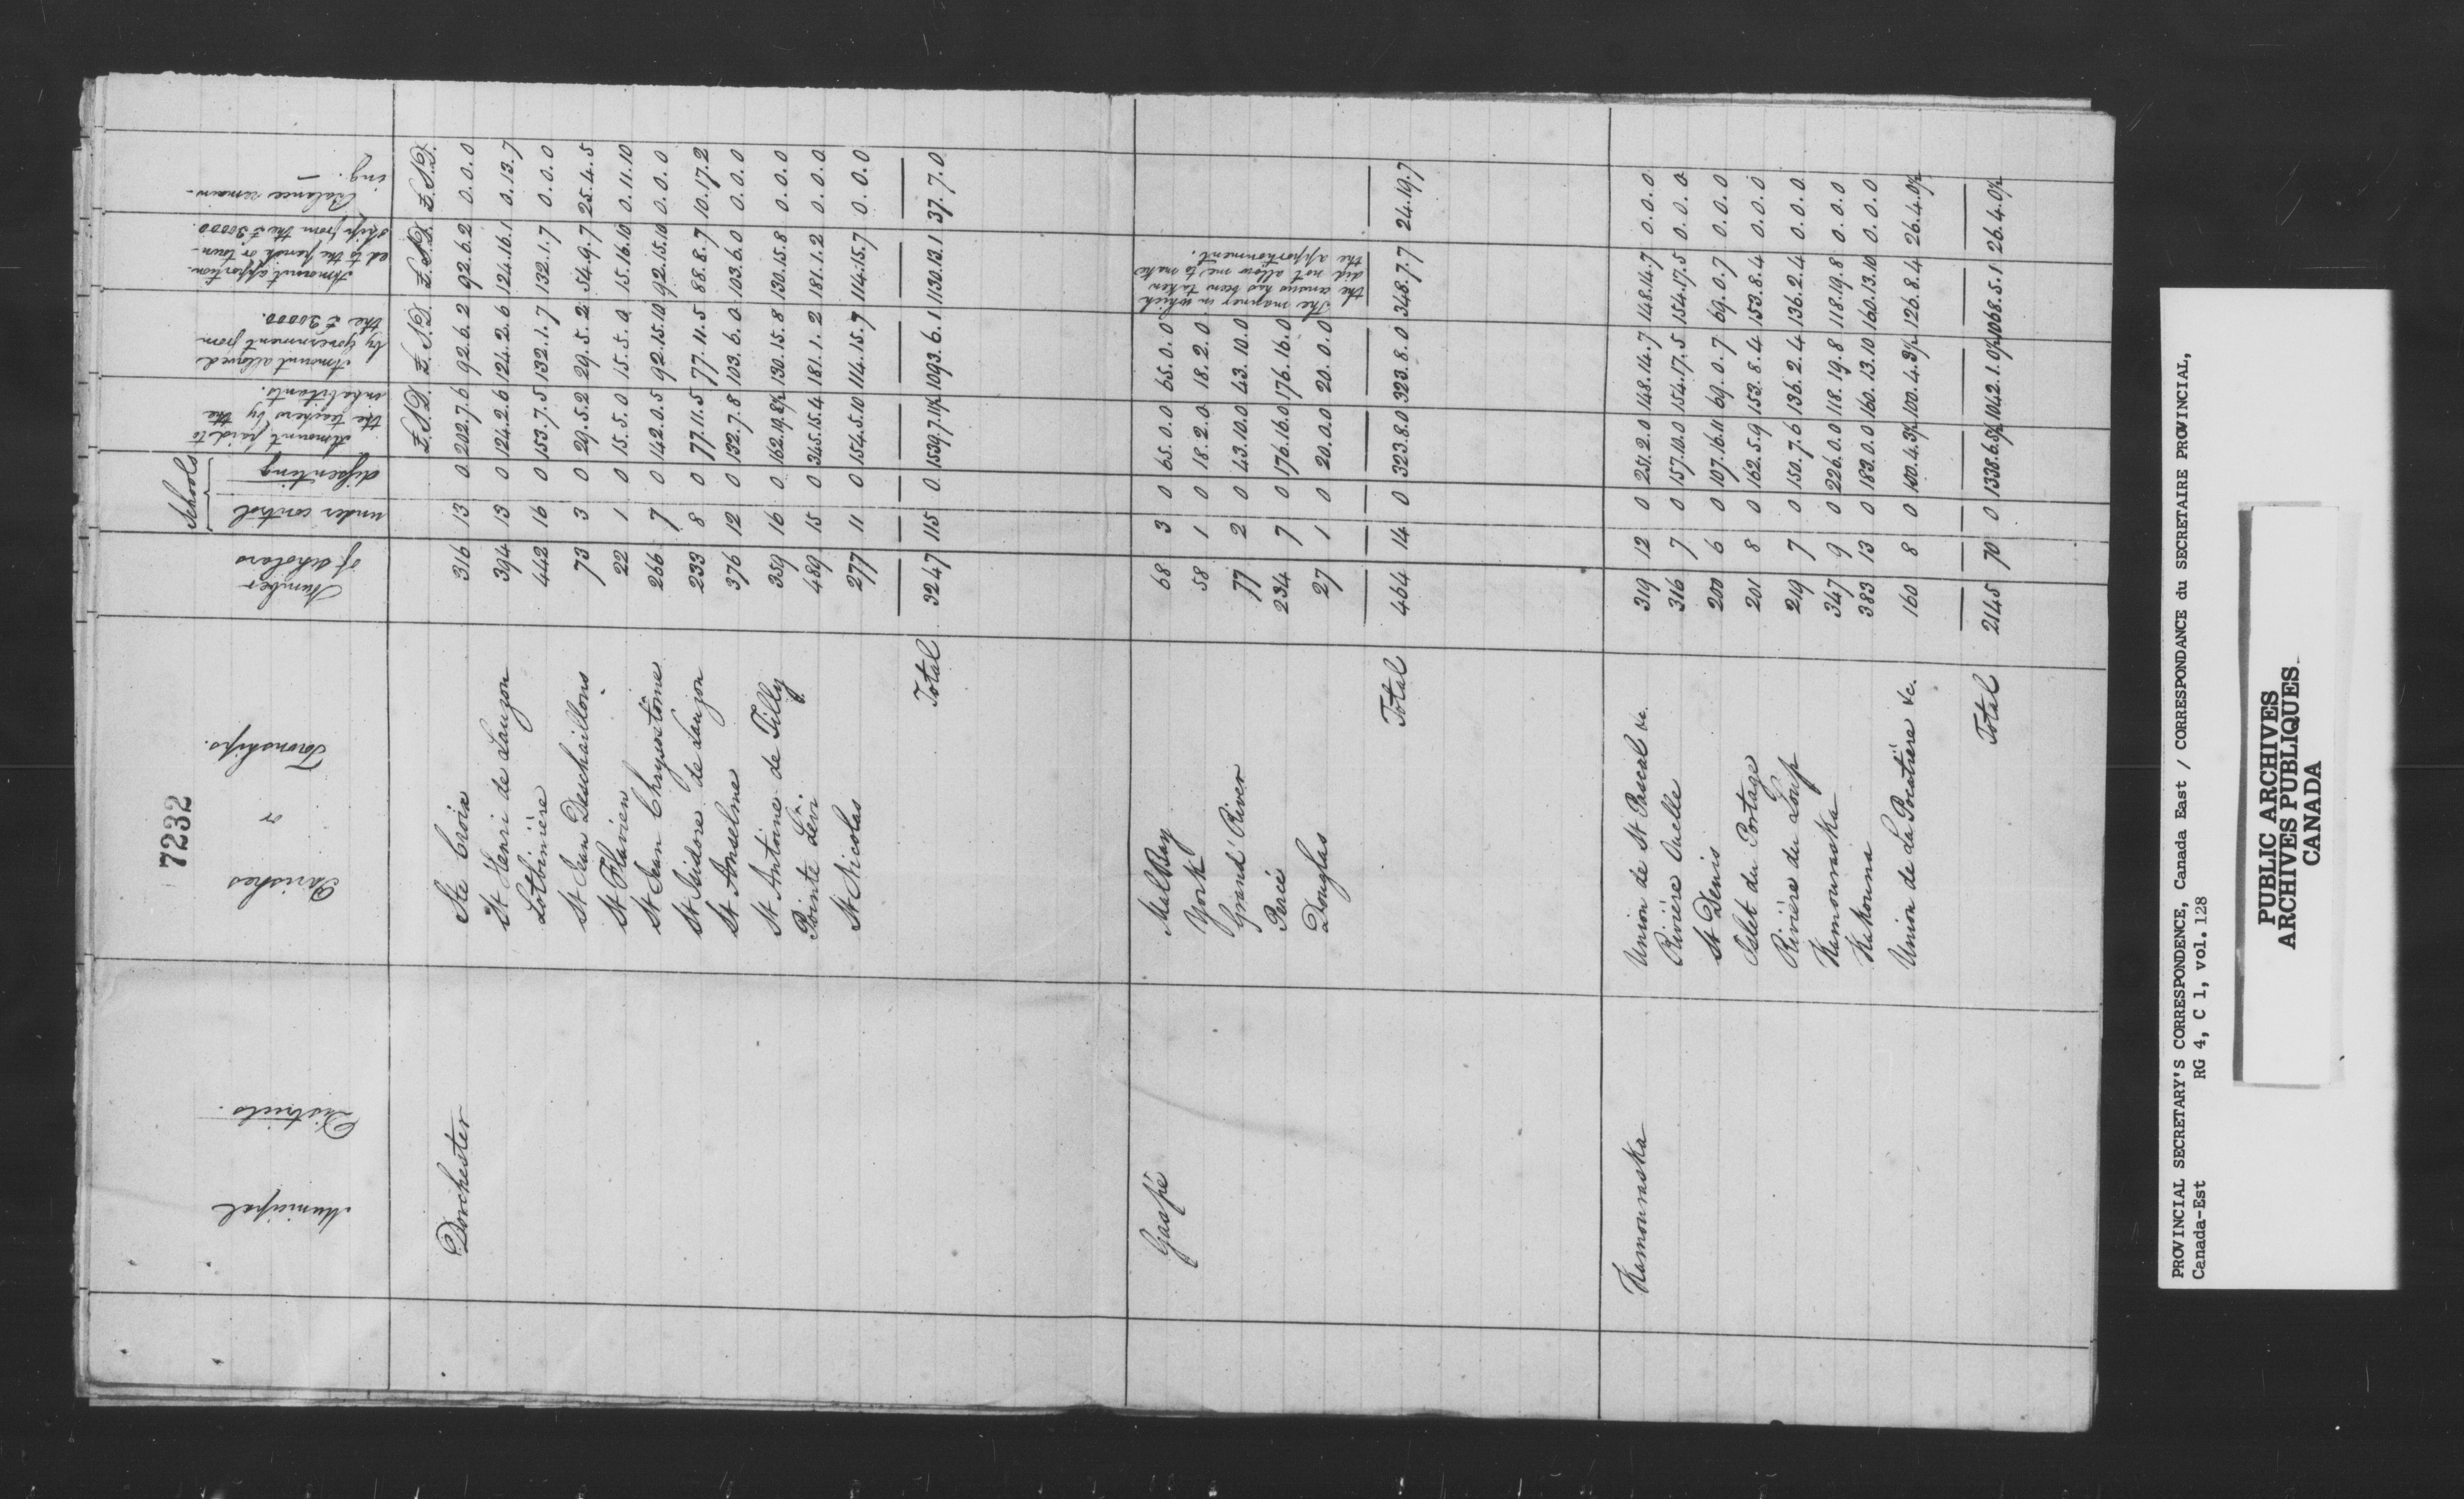 7232
Municipal Districts.
Parishes or Townships.
Number of Scholars
Schools
under control
dissenting
Amount paid to the teachers by the inhabitants.
Amount allowed by Government from the £30000.
Amount apportioned to the parish or township from the £30000.
Balance remaining. —
£. S. D. £. S. D. £. S. D. £. S. D.
Dorchester Ste Croix 316 13 0 202.7.6 92.6.2 92.6.2 0.0.0
St Henri de Lauzon 394 13 0 124.2.6 124.2.6 124.16.1 0.13.7
Lotbinière 442 16 0 153.7.5 132.1.7 132.1.7 0.0.0
St Jean Deschaillons 73 3 0 29.5.2 29.5.2 54.9.7 25.4.5
St Flavien 22 1 0 15.5.0 15.5.0 15.16.10 0.11.10
St Jean Chrysostôme 266 7 0 142.0.5 92.15.10 92.15.10 0.0.0
St Isidore de Lauzon 233 8 0 77.11.5 77.11.5 88.8.7 10.17.2
St Anselme 376 12 0 132.7.8 103.6.0 103.6.0 0.0.0
St Antoine de Tilly 359 16 0 162.19.8½ 130.15.8 130.15.8 0.0.0
Pointe Levi 489 15 0 345.15.4 181.1.2 181.1.2 0.0.0
St Nicolas 277 11 0 154.5.10 114.15.7 114.15.7 0.0.0
Total 3247 115 0 1539.7.11½ 1093.6.1 1130.13.1 37.7.0
Gaspé Mal Bay 68 3 0 65.0.0 65.0.0
York 58 1 0 18.2.0 18.2.0
Grand River 77 2 0 43.10.0 43.10.0
Percé 234 7 0 176.16.0 176.16.0
Douglas 27 1 0 20.0.0 20.0.0
The manner in which
the census has been taken
did not allow me to make
the apportionment.
Total 464 14 0 323.8.0 323.8.0 348.7.7 24.19.7
Kamouraska Union de St Pascal &c. 319 12 0 251.2.0 148.14.7 148.14.7 0.0.0
Rivière Ouelle 316 7 0 157.10.0 154.17.5 154.17.5 0.0.0
St Denis 200 6 0 107.16.11 69.0.7 69.0.7 0.0.0
Islet du Portage 201 8 0 162.5.9 153.8.4 153.8.4 0.0.0
Rivière du Loup 219 7 0 150.7.6 136.2.4 136.2.4 0.0.0
Kamouraska 347 9 0 226.0.0 118.19.8 118.19.8 0.0.0
Kakouna 383 13 0 183.0.0 160.13.10 160.13.10 0.0.0
Union de La Pocatière &c. 160 8 0 100.4.3½ 100.4.3½ 126.8.4 26.4.0½
Total 2145 70 0 1338.6.5½ 1042.1.0½ 1068.5.1 26.4.0½
PROVINCIAL SECRETARY'S CORRESPONDENCE, Canada East / CORRESPONDANCE du SECRETAIRE PROVINCIAL,
Canada-Est RG 4, C 1, vol. 128
PUBLIC ARCHIVES
ARCHIVES PUBLIQUES
CANADA